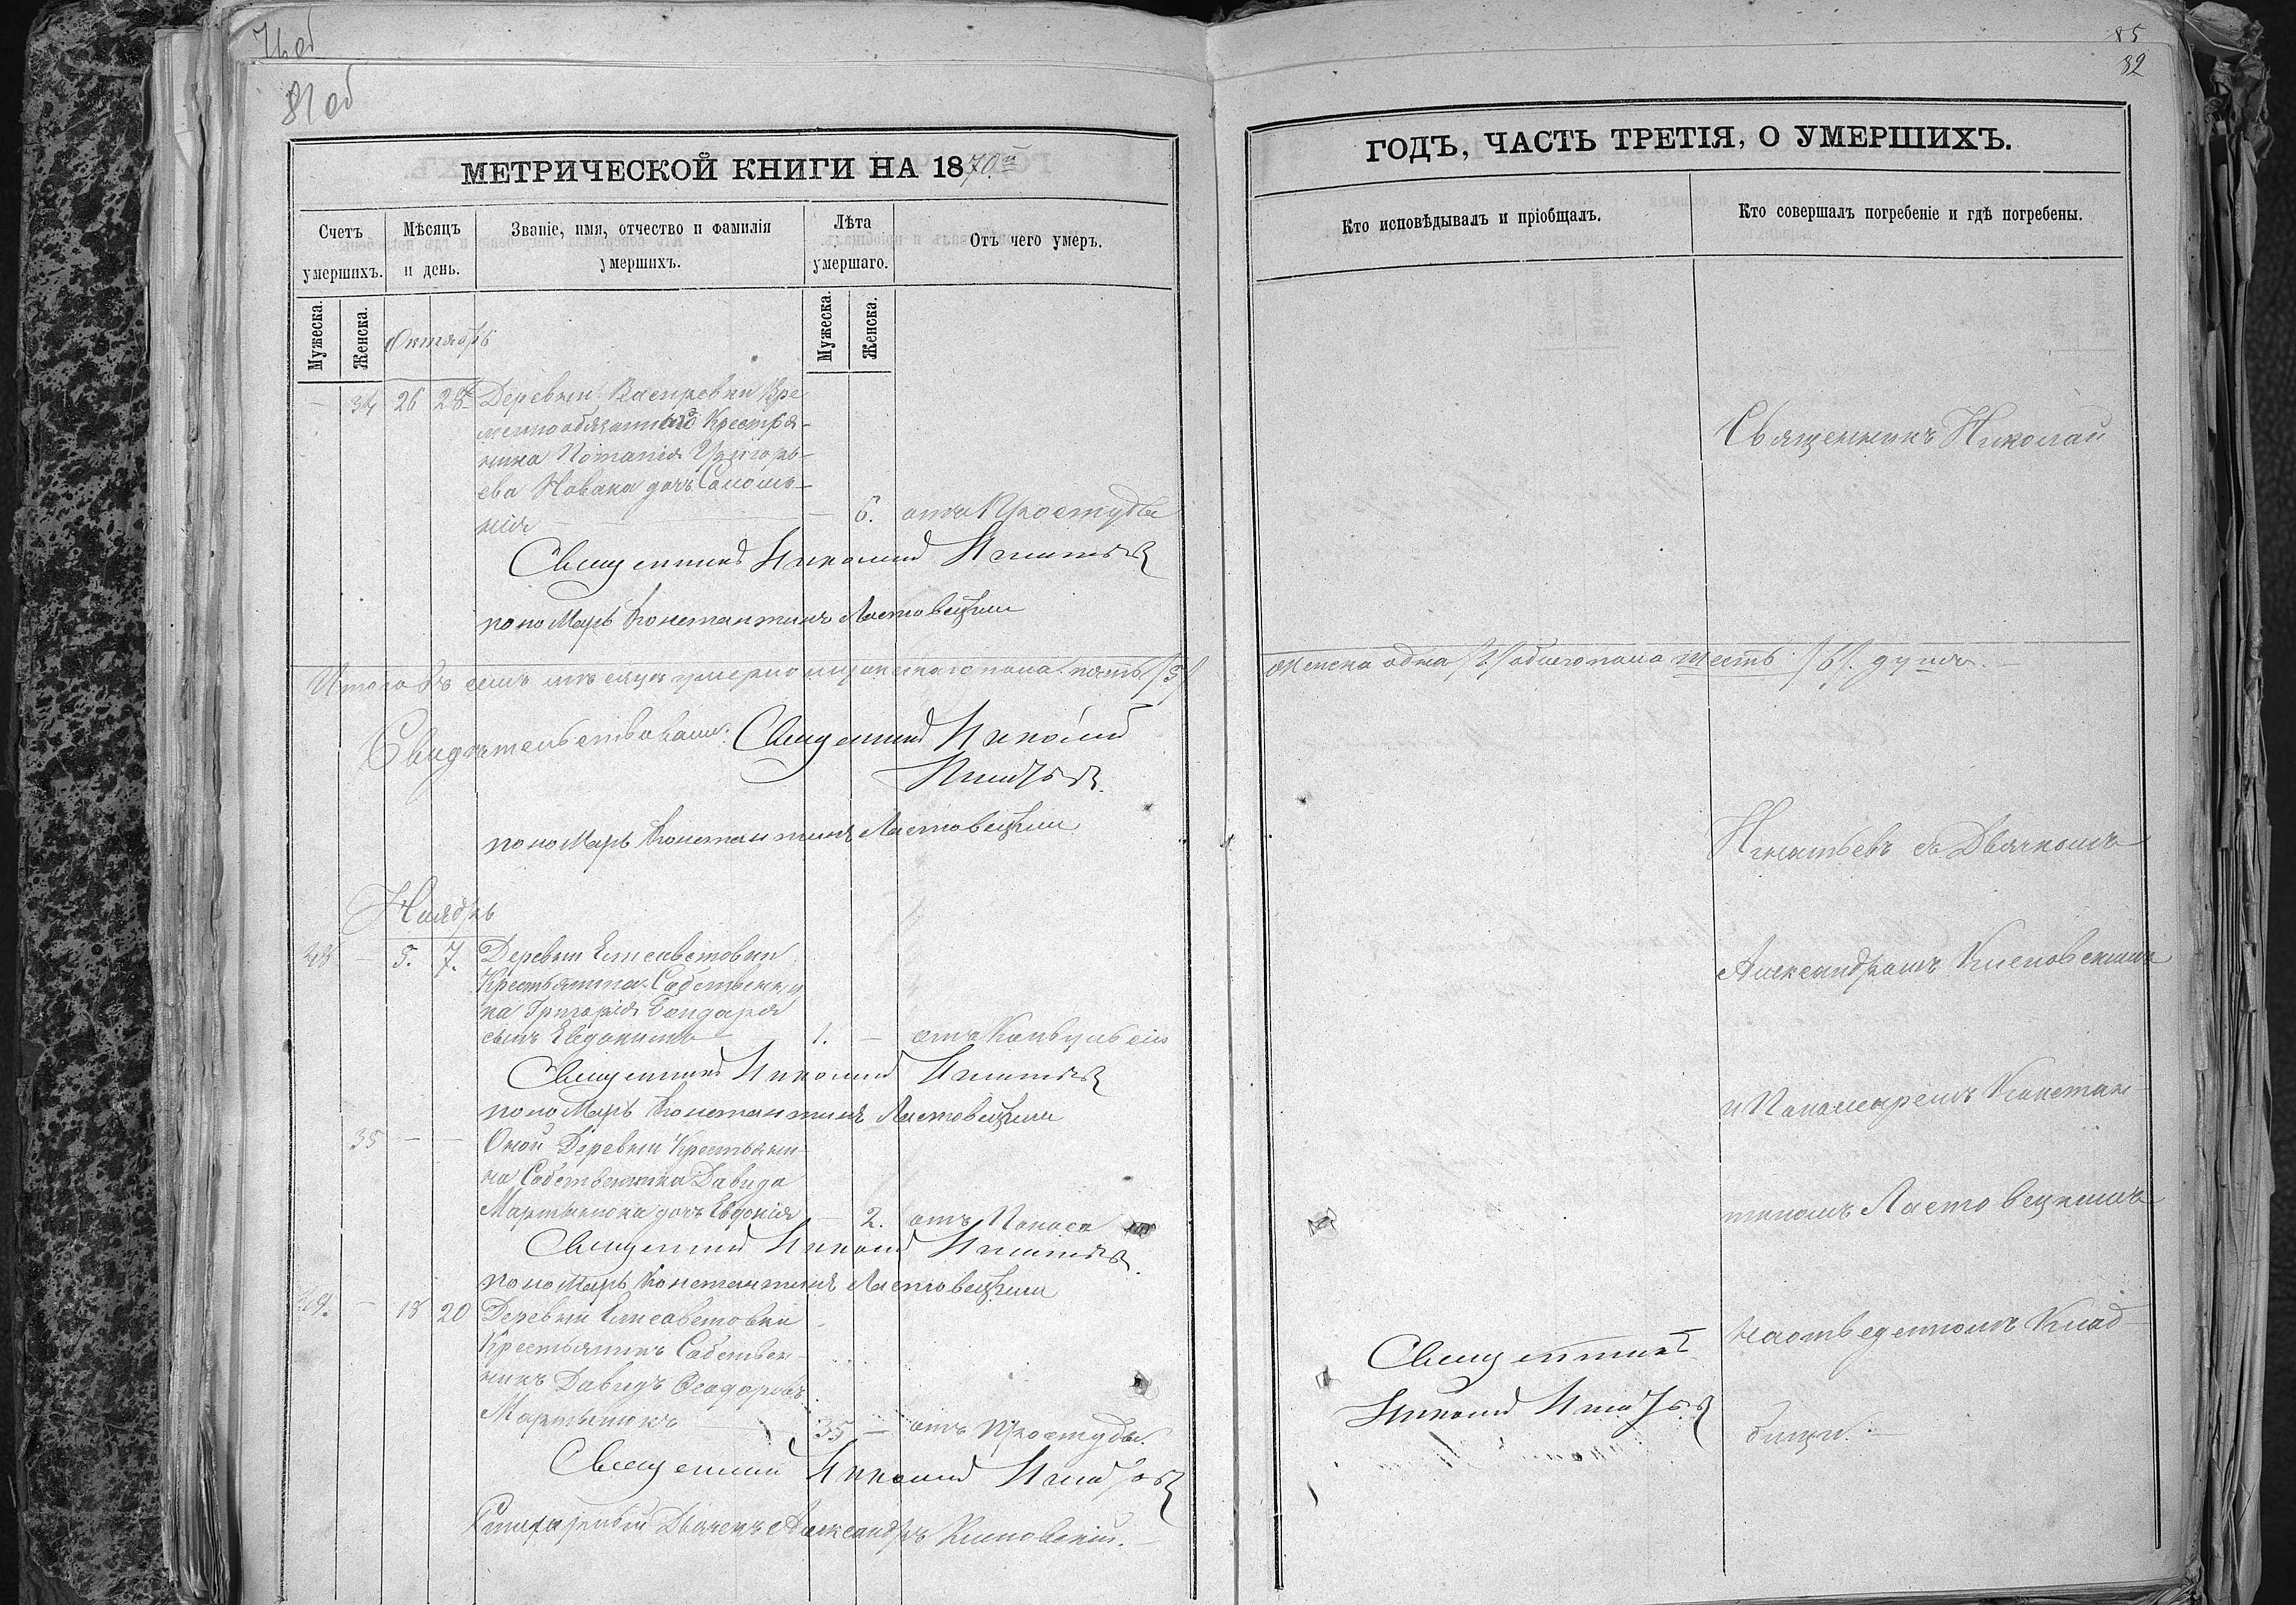 81 об
МЕТРИЧЕСКОЙ КНИГИ НА 1870й
Счетъ умершихъ.
Мѣсяцъ и день.
Званіе, имя, отчество и фамилія умершихъ.
Лѣта умершаго.
Отъ чего умеръ.
Мужеска.
Женска.
Мужеска.
Женска.
Октябрь
— 34 26 28 Деревни Вре
меннообязаннаго Крестья-
нина Григорь-
ева Новака дочь Соломо-
нія — 6. отъ Простуды
Священникъ Николай Игнатьевъ
пономарь Константинъ Ластовецкій
Итого въ семъ мѣсяцѣ умерло мужескаго пола пять /5/
Свидѣтельствовали: Священникъ Николай
Игнатьевъ.
пономарь Константинъ Ластовецкій
Ноябрь
38 — 5. 7. Деревни Елисаветовки
Крестьянина Собственни
ка Григорія Бондаря
сынъ Евдокимъ 1. — отъ Конвульсіи
Священникъ Николай Игнатьевъ
пономарь Константинъ Ластовецкій
35 — — Оной Деревни Крестьяни-
на Собственника Давида
Мартынюка дочь Евдокія — 2. отъ Поноса
Священникъ Николай Игнатьевъ.
пономарь Константинъ Ластовецкій
39. — 18 20 Деревни Елисаветовки
Крестьянинъ Собствен-
никъ Давидъ Ѳеодоровъ
Мартынюкъ 35 — отъ Простуды.
Священникъ Николай Игнатьевъ
Дьячекъ Александръ Кисновскій.
85
82
ГОДЪ, ЧАСТЬ ТРЕТІЯ, О УМЕРШИХЪ.
Кто исповѣдывалъ и пріобщалъ.
Кто совершалъ погребеніе и гдѣ погребены.
Священникъ Николай
женска одна /1/ обоего пола шесть /6/. душъ.
Игнатьевъ съ Дьячкомъ
Александромъ Кисновскимъ
и Пономаремъ Констан-
тиномъ Ластовецкимъ
на отведенномъ Клад-
бищи.
Священникъ
Николай Игнатьевъ